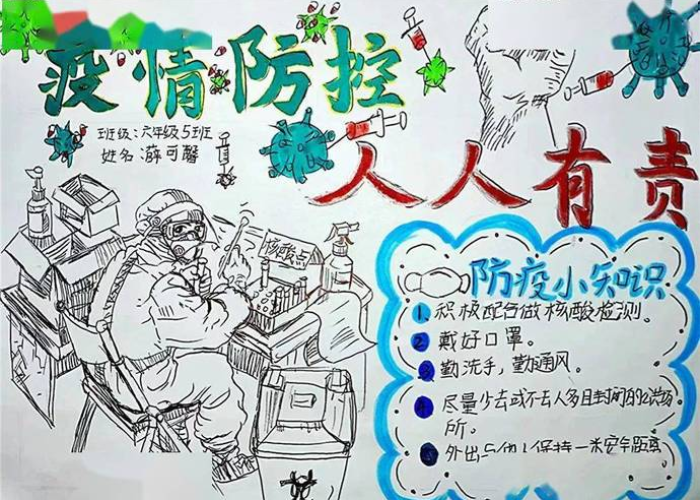 疫情防控
人人有责
班级:六年级5班
姓名:薛可馨
核酸点
防疫小知识
1、积极配合做核酸检测。
2、戴好口罩。
3、勤洗手,勤通风。
4、尽量少去或不去人多且封闭的公共场
所。
5、外出 保持一米安全距离